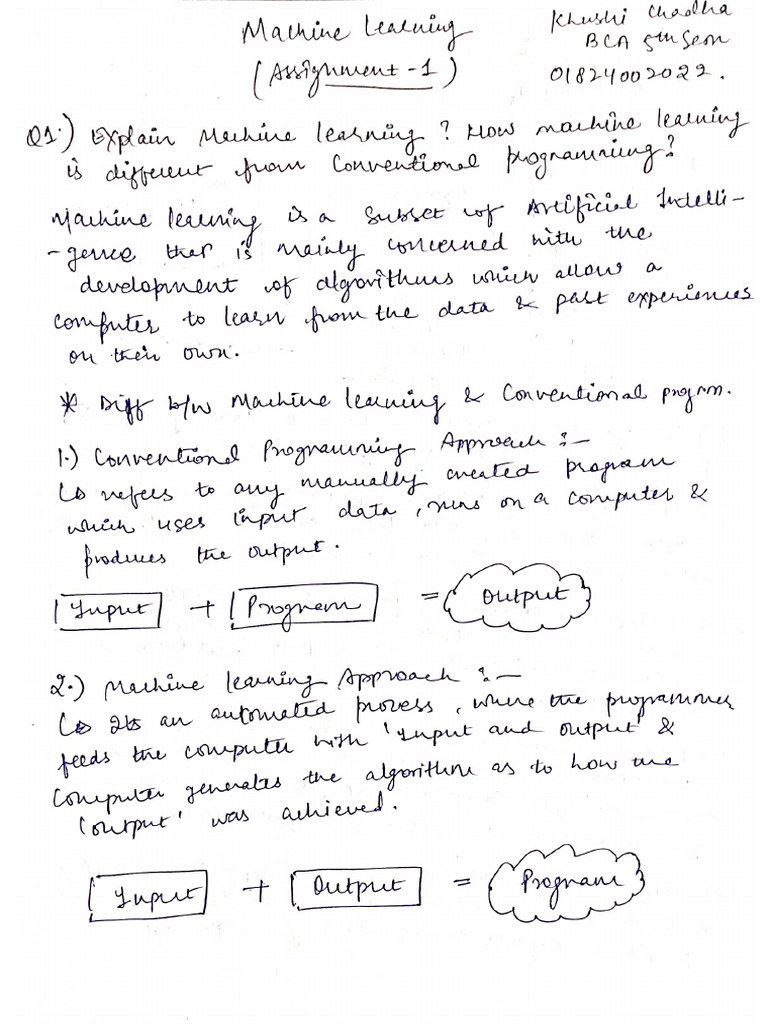 Machine Learning
(Assignment-1)
Khushi Chadha
BCA 5th Sem
01824002022.
Q1.) Explain Machine learning? How machine learning
is different from Conventional programming?
Machine learning is a subset of Artificial Intelli-
-gence that is mainly concerned with the
development of algorithms which allow a
computer to learn from the data & past experiences
on their own.
* Diff b/w Machine learning & Conventional progrm.
1.) Conventional Programming Approach :-
↳ refers to any manually created program
which uses input data, runs on a computer &
produces the output.
Input + Program = Output
2.) Machine Learning Approach :-
↳ Its an automated process, where the programmer
feeds the computer with 'Input and output' &
Computer generates the algorithm as to how the
'output' was achieved.
Input + Output = Program